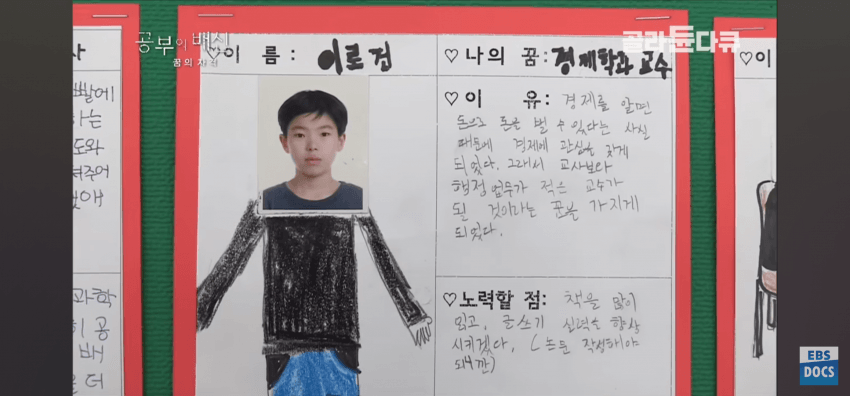 공부의 배신
꿈의 자격
골라듄다큐
♡이 름:
♡나의 꿈: 경제학과 교수
♡이 유: 경제를 알면
돈으로 돈을 벌 수 있다는 사실
때문에 경제에 관심을 갖게
되었다. 그래서 교사보다
행정 업무가 적은 교수가
될 것이라는 꿈을 가지게
되었다.
♡노력할 점: 책을 많이
글쓰기 실력을 향상
시키겠다. (논문 작성해야
되니깐)
사
빨에
하는
도와
져주어
♡이
과학
공
배
더
EBS
DOCS